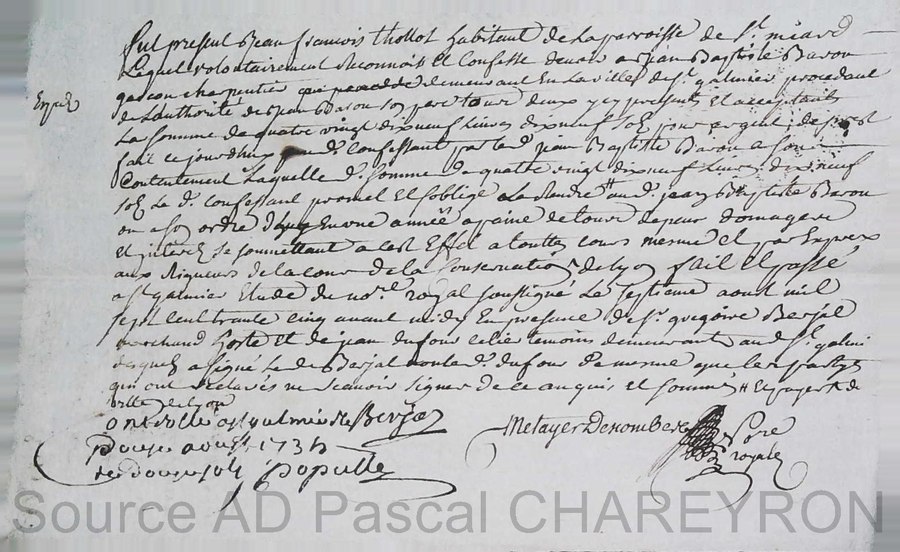 Fut present Jean françois thollot habitant de la parroisse de St. médard
Lequel volontairement reconnoist et confesse devoir a jean Baptiste Baron
garcon charpentier demeurant en la ville de St. galmier procedant
de L'authorité de jean Baron son pere tous deux y presents et acceptants
La somme de quatre vingt dixneuf Livres dixneuf sols pour argent de prest
fait ce jourdhuy au d. confessant par led. jean Baptiste Baron a son
Contentement Laquelle d. somme de quatre vingt dixneuf Livres dixneuf
sols Le d. confessant promet et soblige a Le rendre aud. jean Baptiste Baron
ou a son ordre dans une année a paine de tous depens domages
et interets se soumettant a cest Effet a touttes cours mesme et par Exprex
aux Rigueurs de la cour de la Conservation de Lyon fait et passé
a St. galmier Etude du nore. royal soussigné Le septieme aoust mil
sept cent trante cinq avant midy En presance de Sr. gregoire Berjat
marchand hoste et de jean dufour temoins demeurants aud. St. galmier
desquels a signé Le d. Sr. Berjat non le d. dufour de mesme que les partyes
qui ont declarés ne scavoir signer de ce enquis et sommés
ville de Lyon
controllé a St galmier le Berjat
Douze aoust 1735
Metayer Denombret Nore
royal
reçu douze sols populle
Source AD Pascal CHAREYRON